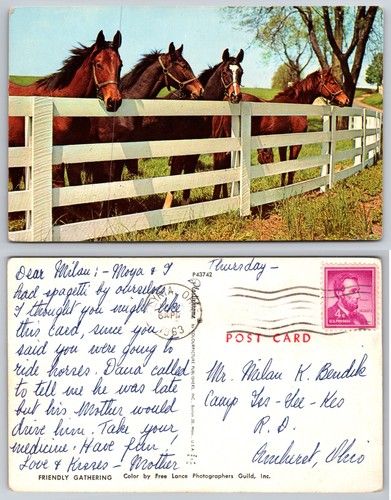 Dear Milan:- Moya & I
had spagetti by ourselves.
I thought you might like
this card, since you
said you were going to
ride horses. Dana called
to tell me he was late
but his Mother would
drive him. Take your
medicine. Have fun!
Love & Kisses - Mother
FRIENDLY GATHERING
Color by Free Lance Photographers Guild, Inc.
P43742
Thursday -
1963
4¢
POST CARD
Mr. Milan K. Bendik
Camp
R.D.
Amherst, Ohio